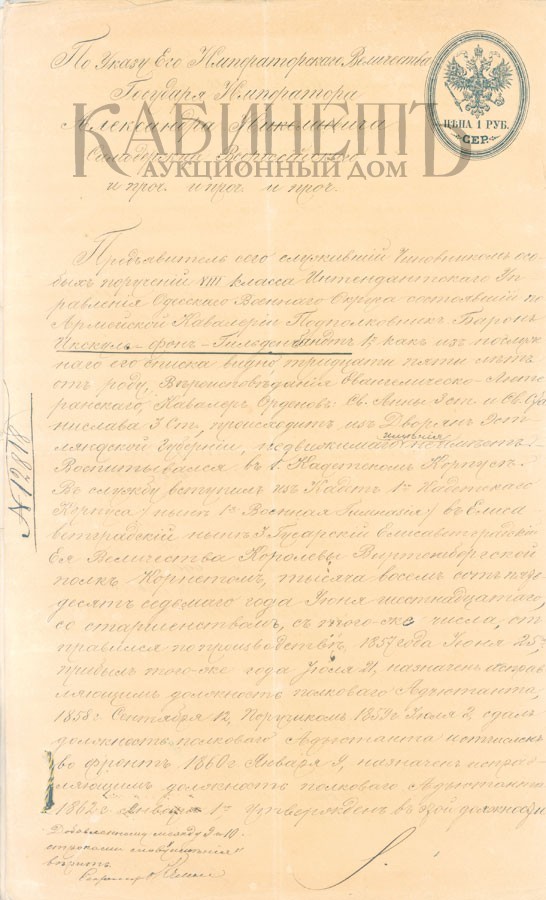 По Указу Его Императорскаго Величества
Государя Императора
КАБИНЕТЪ
Александра Николаевича
АУКЦИОННЫЙ ДОМ
Самодержца Всероссийскаго
и проч. и проч. и проч.
ЦѢНА 1 РУБ.
СЕР.
Предъявитель сего служившій Чиновникомъ осо-
быхъ порученій VIII класса Интендантскаго Уп-
равленія Одесскаго Военнаго Округа состоявшій по
Армейской Кавалеріи Подполковникъ Баронъ
Икскуль-фонъ-Гильденбандтъ 1й какъ изъ послуж
наго его списка видно, тридцати пяти лѣтъ
отъ роду, Вѣроисповѣданія Евангелическо-Люте-
ранскаго, Кавалеръ Орденовъ: Св. Анны 3 ст и Св. Ста
нислава 3 Ст, происходитъ изъ Дворянъ Эст
ляндской Губерніи, недвижимаго имѣнія не имѣетъ
Воспитывался въ 1. Кадетскомъ Корпусѣ.
Въ службу вступилъ изъ Кадетъ 1го Кадетскаго
Корпуса /нынѣ 1я Военная Гимназія/ въ Елиса
ветградскій нынѣ 3 Гусарскій Елисаветградскій
Ея Величества Королевы Виртембергской
полкъ Корнетомъ, тысяча восемь сотъ пять
десятъ седьмаго года Іюня шестнадцатаго,
со старшинствомъ, съ того-же числа, от
правился по производствѣ, 1857 года Іюня 25
прибылъ того-же года Іюля 21, назначенъ исправ
ляющимъ должность полковаго Адъютанта
1858: Сентября 12, Поручикомъ 1859 г Іюля 2, сдалъ
должность полковаго Адъютанта и отчисленъ
во фронтъ 1860 г Января 9, назначенъ исправ-
ляющимъ должность полковаго Адъютанта
1862 г Января 1го Утвержденъ въ сей должности
№ 12818
Добавленному между 9 и 10
строками слову "имѣнія"
вѣрить